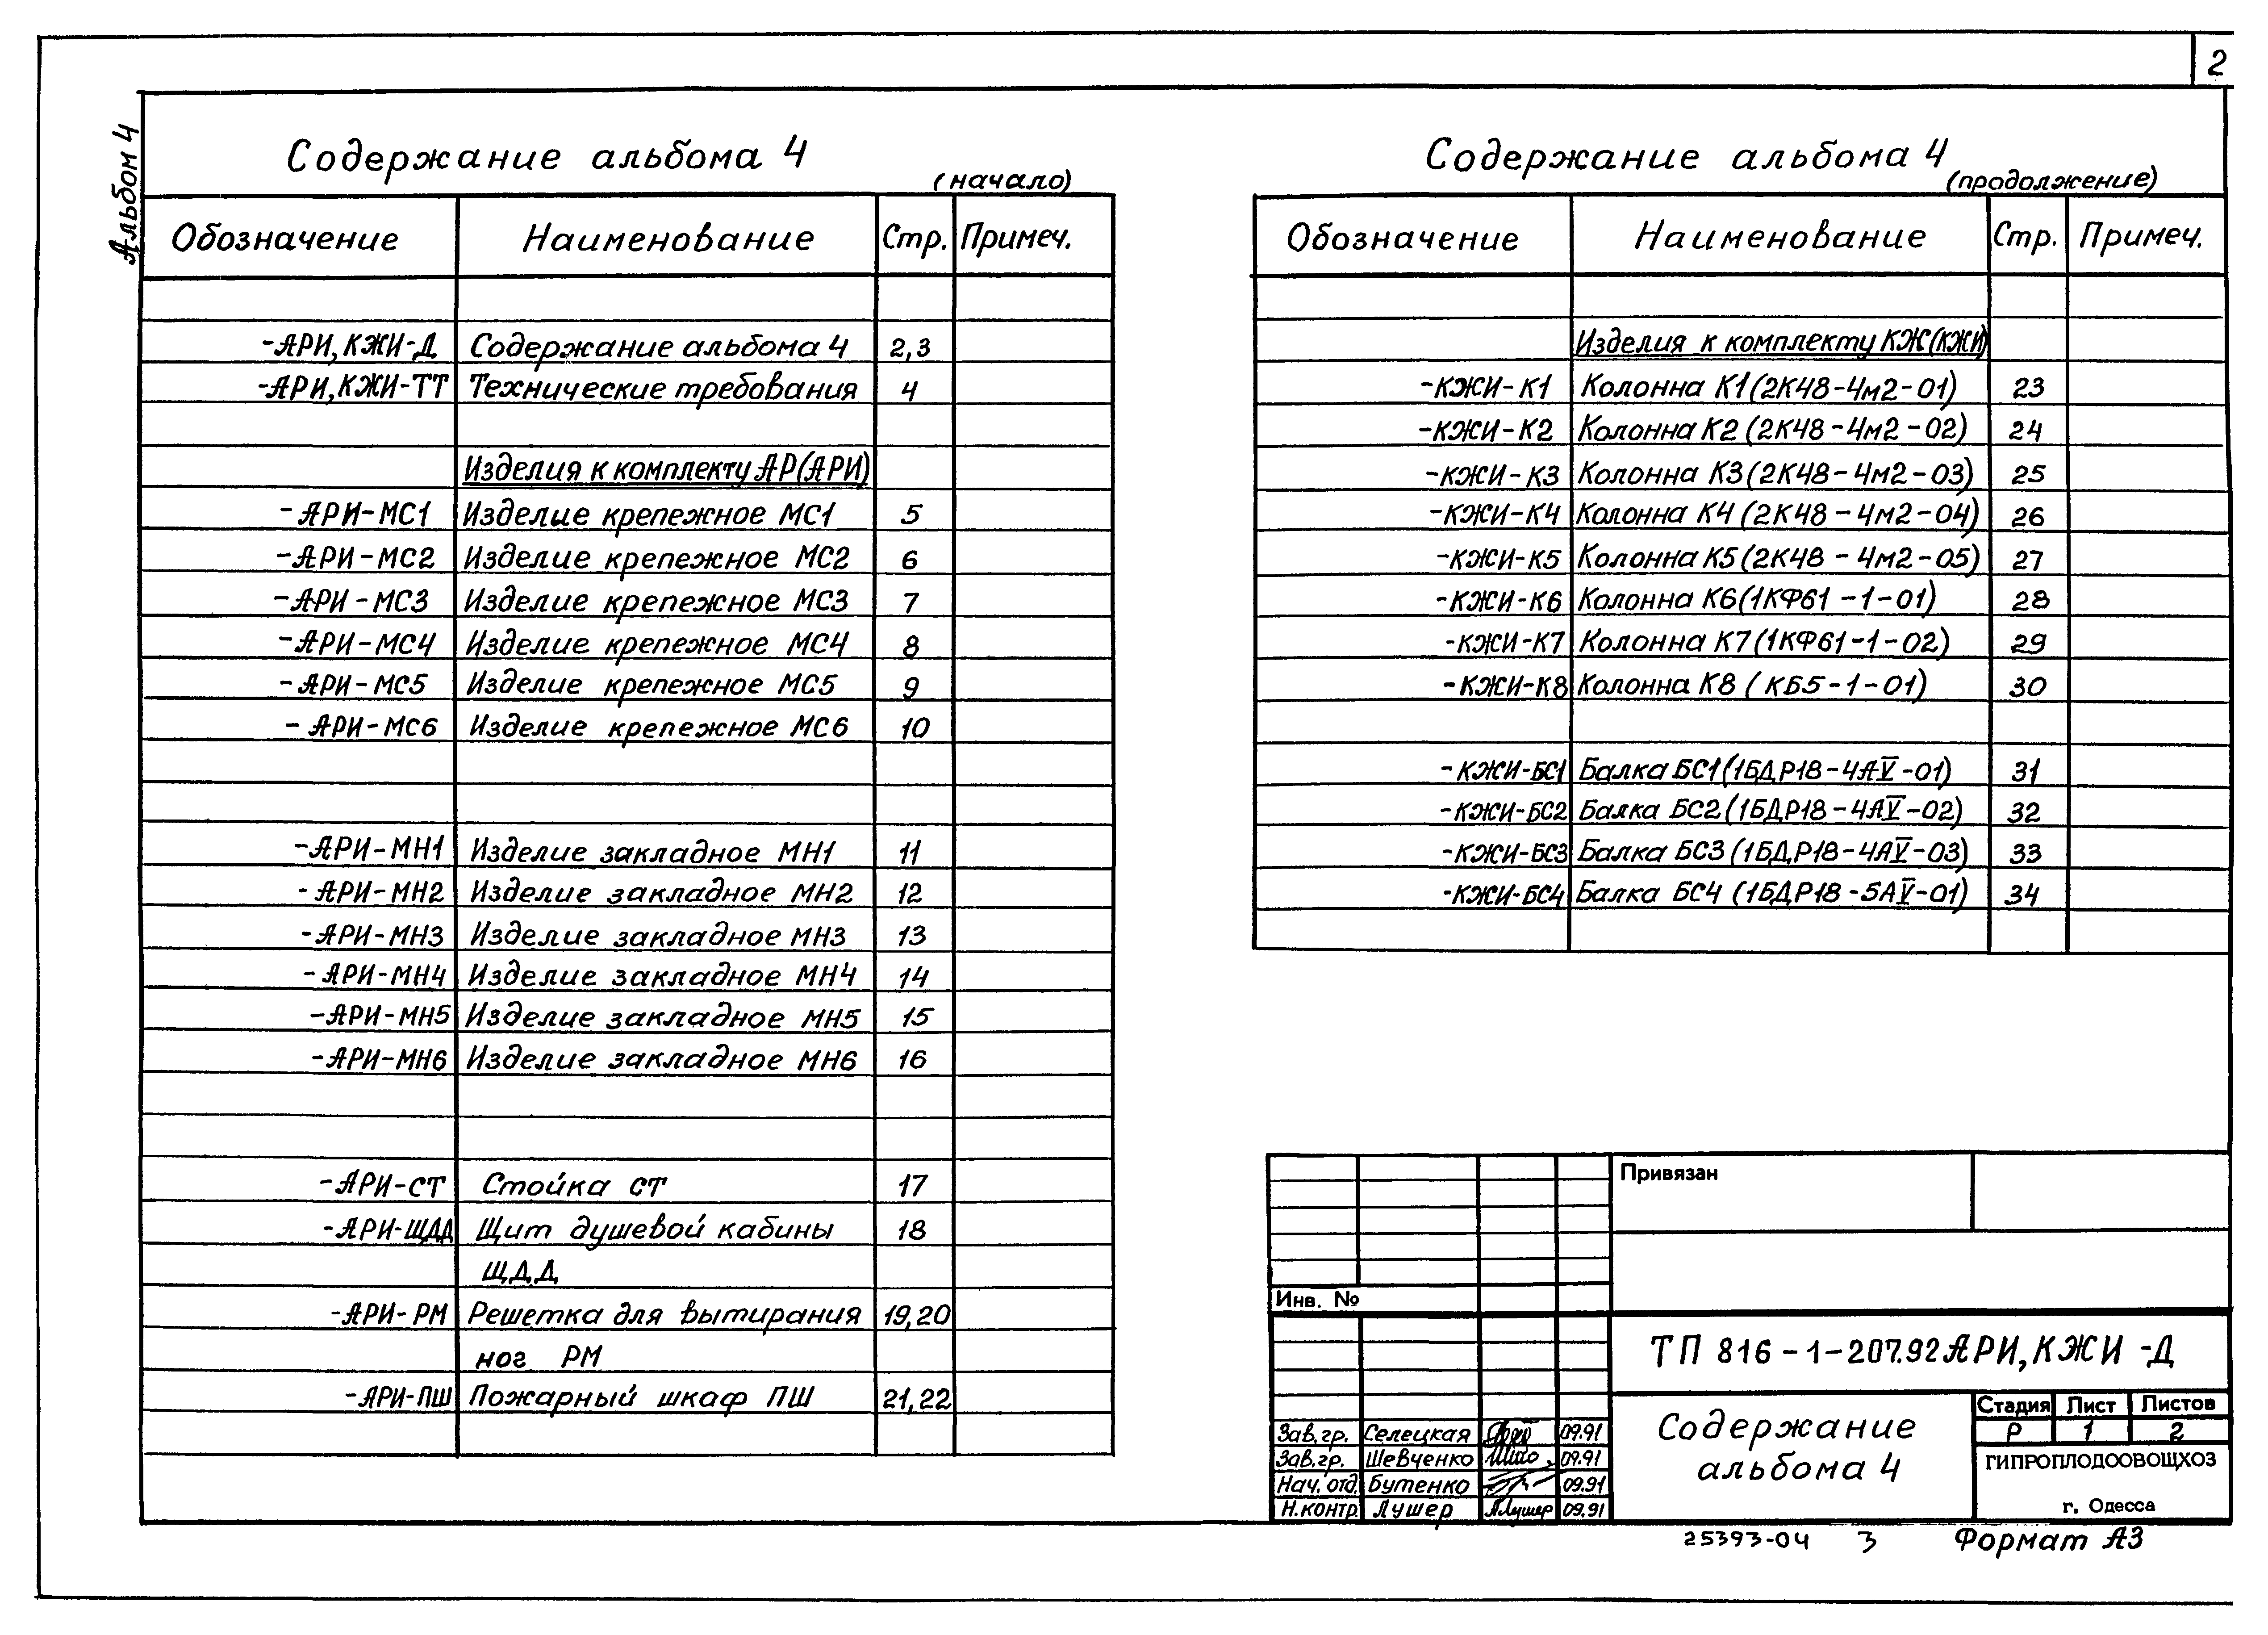 2
Альбом 4
Содержание альбома 4
(начало)
Обозначение Наименование Стр. Примеч.
-АРИ, КЖИ-Д Содержание альбома 4 2,3
-АРИ, КЖИ-ТТ Технические требования 4
Изделия к комплекту АР(АРИ)
-АРИ-МС1 Изделие крепежное МС1 5
-АРИ-МС2 Изделие крепежное МС2 6
-АРИ-МС3 Изделие крепежное МС3 7
-АРИ-МС4 Изделие крепежное МС4 8
-АРИ-МС5 Изделие крепежное МС5 9
-АРИ-МС6 Изделие крепежное МС6 10
-АРИ-МН1 Изделие закладное МН1 11
-АРИ-МН2 Изделие закладное МН2 12
-АРИ-МН3 Изделие закладное МН3 13
-АРИ-МН4 Изделие закладное МН4 14
-АРИ-МН5 Изделие закладное МН5 15
-АРИ-МН6 Изделие закладное МН6 16
-АРИ-СТ Стойка СТ 17
-АРИ-ЩДД Щит душевой кабины 18
ЩДД
-АРИ-РМ Решетка для вытирания 19,20
ног РМ
-АРИ-ПШ Пожарный шкаф ПШ 21,22
Содержание альбома 4
(продолжение)
Обозначение Наименование Стр. Примеч.
Изделия к комплекту КЖ(КЖИ)
-КЖИ-К1 Колонна К1(2К48-4м2-01) 23
-КЖИ-К2 Колонна К2(2К48-4м2-02) 24
-КЖИ-К3 Колонна К3(2К48-4м2-03) 25
-КЖИ-К4 Колонна К4(2К48-4м2-04) 26
-КЖИ-К5 Колонна К5(2К48-4м2-05) 27
-КЖИ-К6 Колонна К6(1КФ61-1-01) 28
-КЖИ-К7 Колонна К7(1КФ61-1-02) 29
-КЖИ-К8 Колонна К8 (КБ5-1-01) 30
-КЖИ-БС1 Балка БС1(1БДР18-4АV-01) 31
-КЖИ-БС2 Балка БС2(1БДР18-4АV-02) 32
-КЖИ-БС3 Балка БС3(1БДР18-4АV-03) 33
-КЖИ-БС4 Балка БС4 (1БДР18-5АV-01) 34
Привязан
Инв. №
ТП 816-1-207.92 АРИ, КЖИ -Д
Содержание
альбома 4
Стадия Лист Листов
Р 1 2
ГИПРОПЛОДООВОЩХОЗ
г. Одесса
Зав. гр. Селецкая 09.91
Зав. гр. Шевченко 09.91
Нач. отд. Бутенко 09.91
Н.контр. Лушер Лушер 09.91
25393-04 3 Формат А3